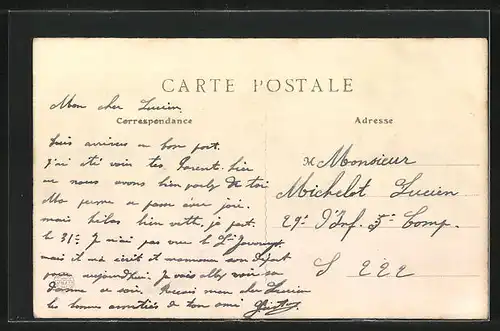 CARTE POSTALE
Correspondance
Adresse
Mon cher Lucien
suis arriver a bon port.
J'ai été voir tes Parent hier
ne nous avons bien parlé de toi
Ma perme a passé joie.
mais hélas bien vitte, je part
le 21: Je n'ai pas vue le
mais il m'a écrit et
pour aujourdhui. Je vois voir sa
ce soir. mon cher Lucien
les bonnes amitiés de ton ami
M Monsieur
Michelot Lucien
29e d'Inf. 5e Comp.
S 222